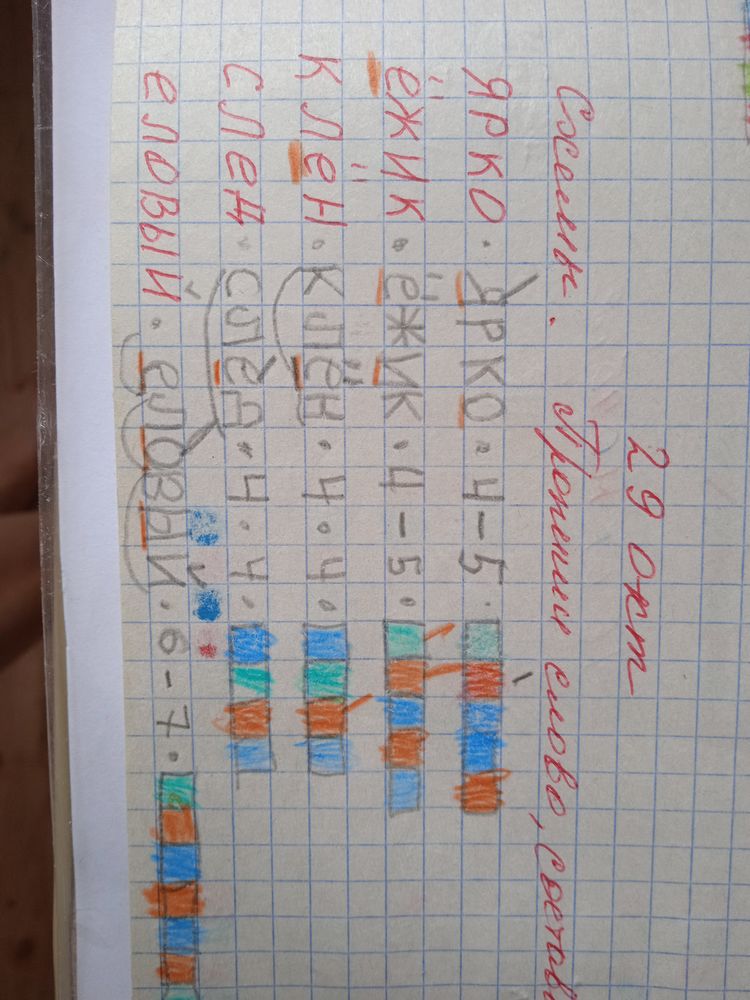 29 окт
слово, состав
ЯРКО. ЯРКО. 4-5.
ёЖИК. ёЖИК. 4-5.
КЛёН. КЛёН. 4. 4.
СЛеД. СЛеД. 4. 4.
еЛОВЫЙ. еЛОВЫЙ. 6-7.